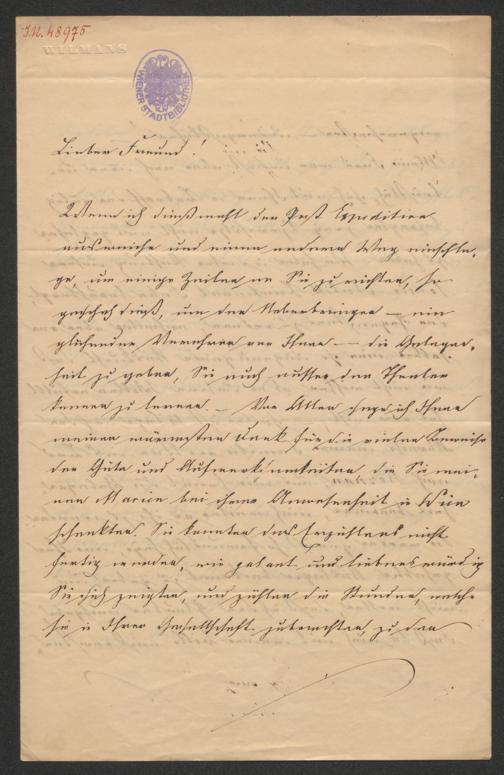 I.N. 48975
WIENER STADTBIBLIOTHEK
Lieber Freund!
Wenn ich dießmahl der Post Expedition
ausweiche und einen anderen Weg einschla,
ge, um einige Zeilen an Sie zu richten, so
geschah dieß, um dem Ueberbringer – ein
glühender Verehrer von Ihnen – die Gelegen,
heit zu geben, Sie auch ausser dem Theater
kennen zu lernen. – Vor Allem sage ich Ihnen
meinen wärmsten Dank für die vielen Beweise
der Güte und Aufmerksamkeiten die Sie mei,
nen Marien bei ihrer Anwesenheit in Wien
schenkten. Sie konnten des Erzählens nicht
fertig werden, wie galant und liebenswürdig
Sie sich zeigten, und zählten die Stunden, welche
sie in Ihrer Gesellschaft zubrachten, zu den